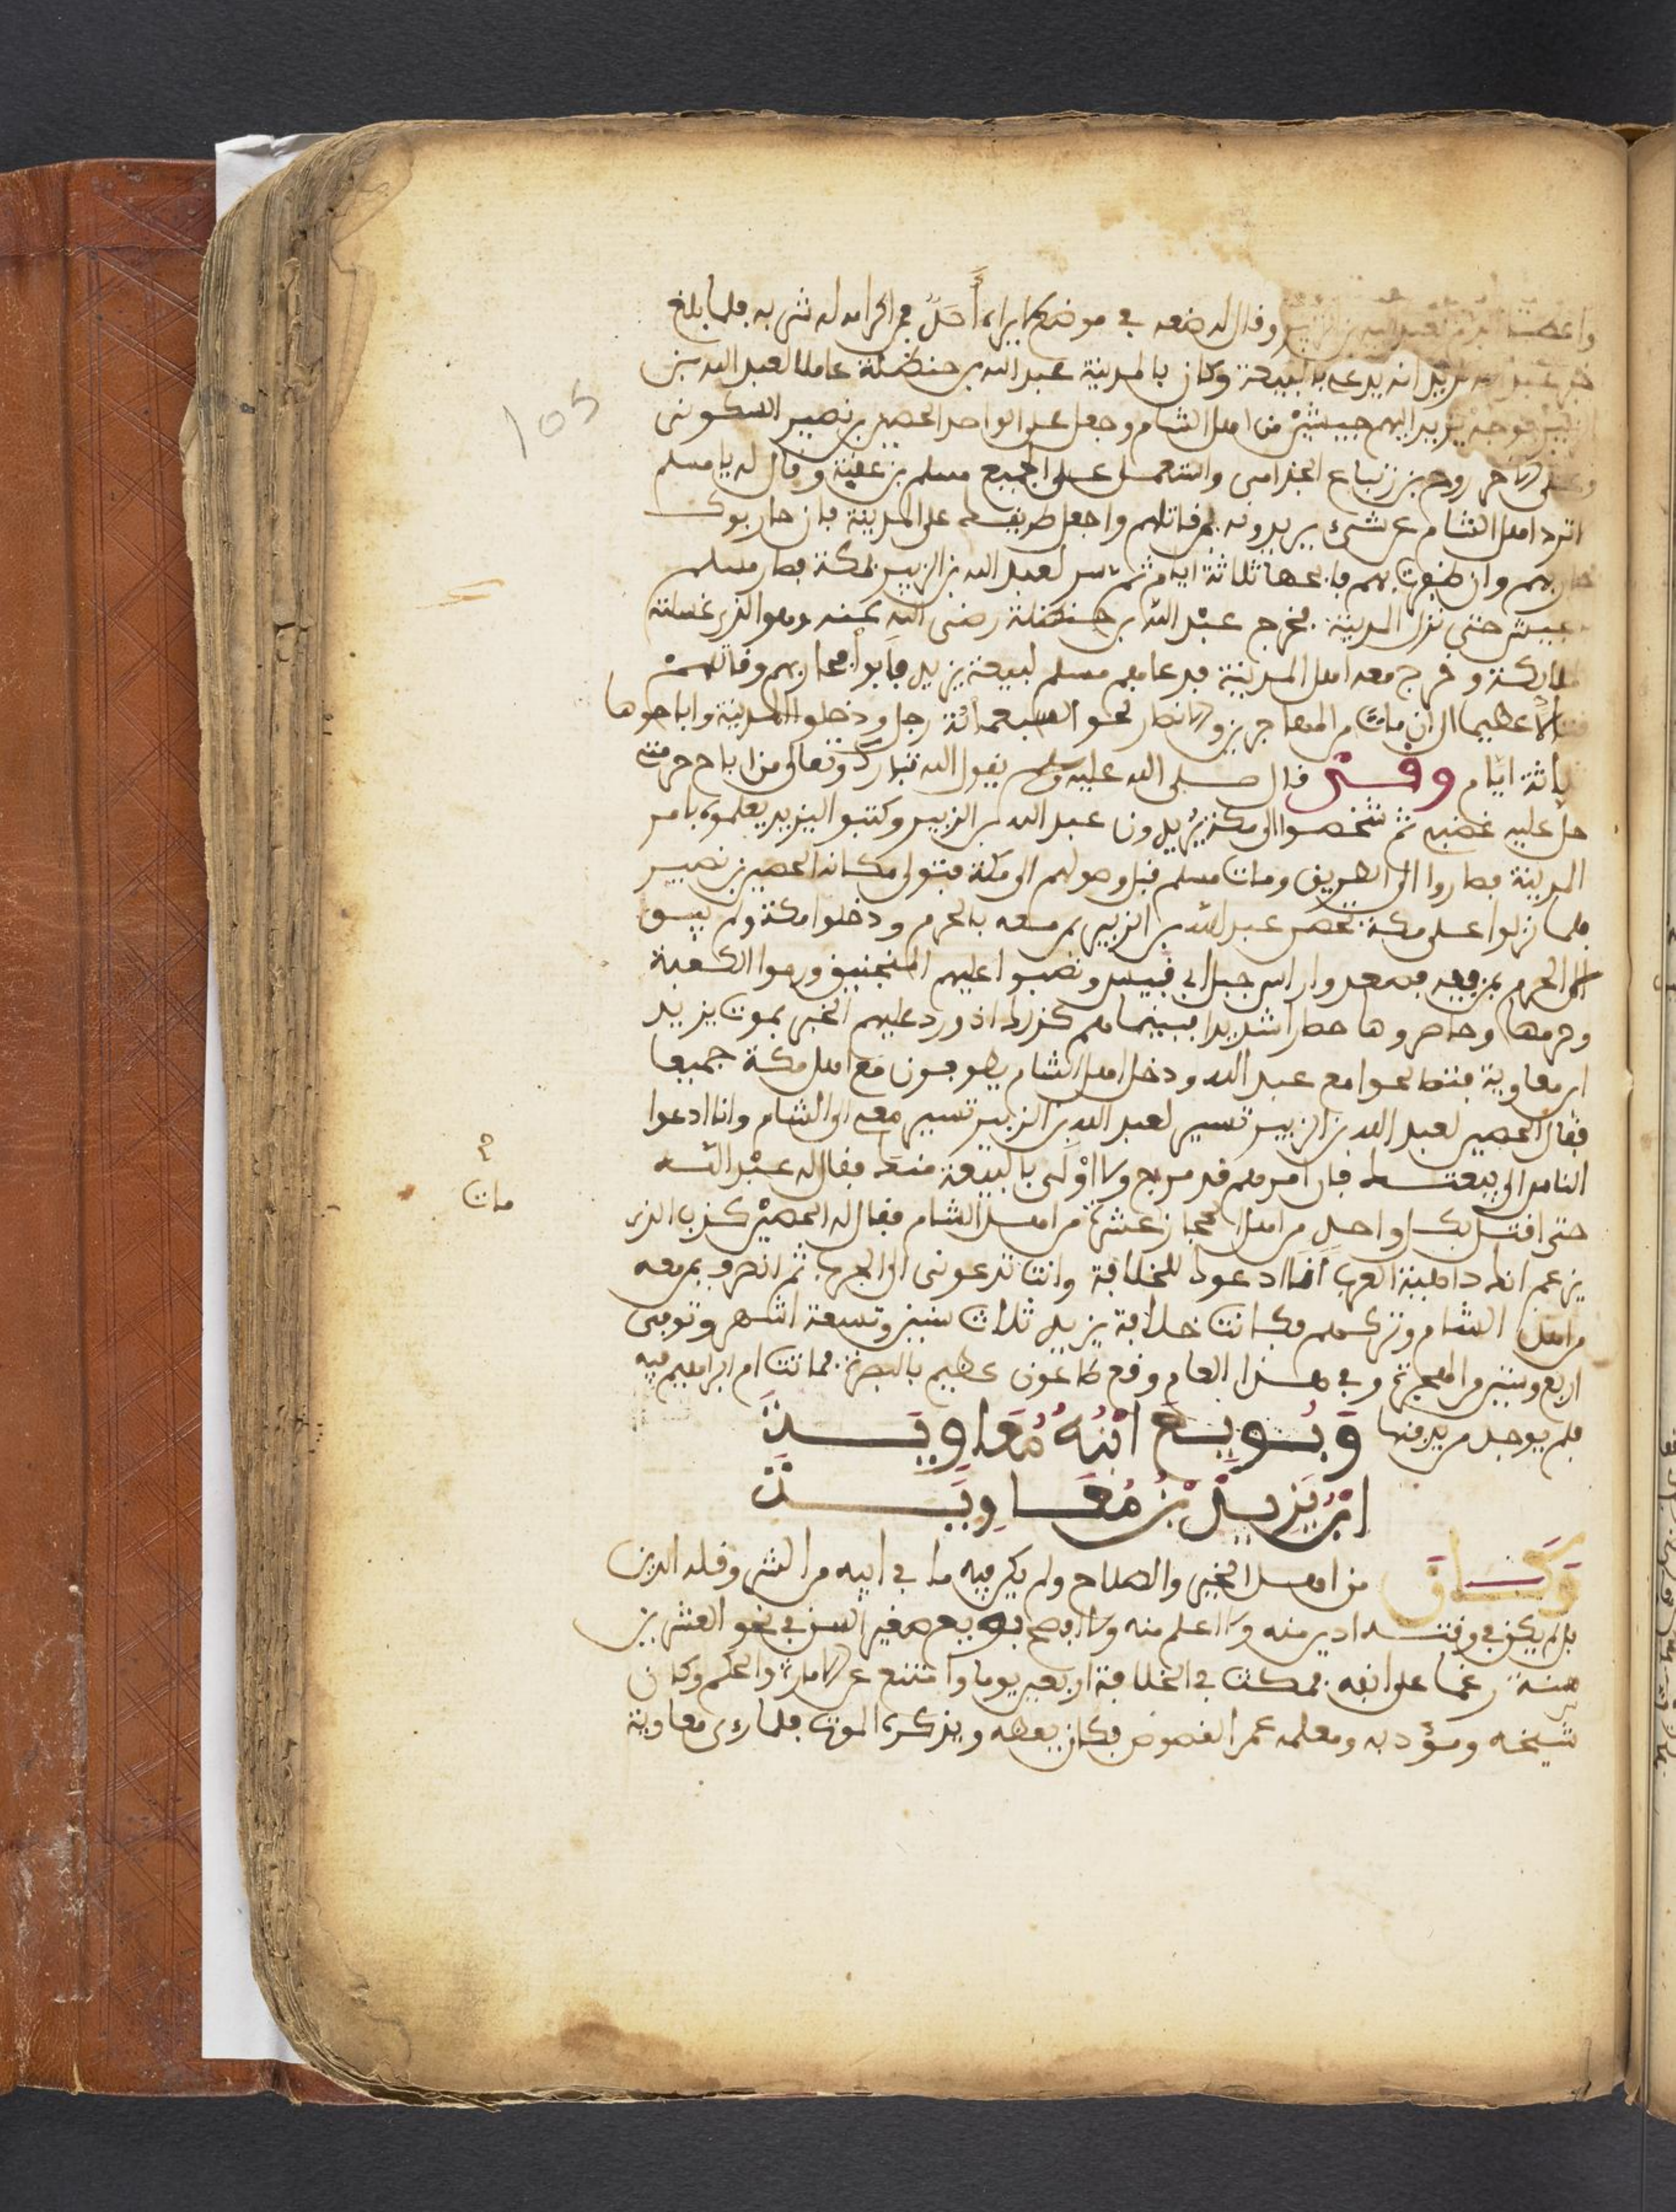 وقال له ضعه في موضع لا يراه أحد في اكرامه له شي به فلما بلغ
خبر عبد الله يزيد انه يدعي بالبيعة وكان بالمدينة عبد الله بن حنظلة عاملا لعبد الله بن
الزبير فوجه يزيد اليهم جيشا من اهل الشام وجعل على الواحد الحصين بن نمير السكوني
وعلى الاخر روح بن زنباع الجذامي واستعمل على الجميع مسلم بن عقبة وقال له يا مسلم
اترد اهل الشام عن شيء يريدونه واجعل طريقك على المدينة فان حاربوك
حاربهم وان ظفرت بهم فابحها ثلاثة ايام ثم سر لعبد الله بن الزبير بمكة فصار مسلم
بجيش حتى نزل المدينة فخرج عبد الله بن حنظلة رضي الله عنه وهو الذي غسلته
الملايكة وخرج معه اهل المدينة فدعاهم مسلم لبيعة يزيد فأبوا فحاربهم وقاتلهم
قتالا عظيما الى ان مات من المهاجرين والانصار نحو السبعمائة رجل ودخلوا المدينة واباحوها
ثلاثة ايام وقد قال صلى الله عليه وسلم يقول الله تبارك وتعالى من اباح حرمتي
حل عليه غضبي ثم شخصوا الى مكة يريدون عبد الله بن الزبير وكتبوا اليزيد يعلموه بامر
المدينة فصاروا الى الطريق ومات مسلم قبل وصولهم الى مكة فتولى مكانه الحصين بن نصير
فلما نزلوا على مكة تحصن عبد الله بن الزبير بمن معه بالحرم ودخلوا مكة ولم يبق
الا الحرم بمن فيه فصعدوا راس جبل ابي قبيس ونصبوا عليهم المنجنيق ورموا الكعبة
وهدمها وحاصروها حصارا شديدا فبينما هم كذلك اذ ورد عليهم الخبر بموت يزيد
ابن معاوية فتصالحوا مع عبد الله ودخل اهل الشام يطوفون مع اهل مكة جميعا
فقال الحصين لعبد الله بن الزبير تسير لعبد الله بن الزبير تسير معي الى الشام وانا ادعوا
الناس الى بيعتك فان امرهم قد مرج ولا اولى بالبيعة منك فقال له عبد الله
حتى اقتل بكل واحد من اهل الحجاز عشرة من اهل الشام فقال له الحصين كذب الذي
يزعم انك داهية العرب انا ادعوك للخلافة وانت تدعوني الى الحرب ثم انصرف بمن معه
من اهل الشام وتركهم فكانت خلافة يزيد ثلاث سنين وتسعة اشهر وتوفي
اربع وستين من الهجرة وفي هذا العام وقع طاعون عظيم بالبصرة فماتت ام ابراهيم فيه
فلم يوجد من يدفنها وَبُويِعَ ابْنُهُ مُعَاوِيَة
ابْنُ يَزِيدَ بْنِ مُعَاوِيَة
وَكَانَ من اهل الخير والصلاح ولم يكن فيه ما في ابيه من الشر وقلة الدين
بل لم يكن في وقته ادين منه ولا اعلم منه ولا افصح بويع صغير السن في نحو العشرين
سنة رغما على انفه فمكث في الخلافة اربعين يوما وامتنع عن الامارة والحكم وكان
شيخه ومؤدبه ومعلمه عمر القصوص فكان يعظه ويذكره الموت فلما رءى معاوية
105
مات